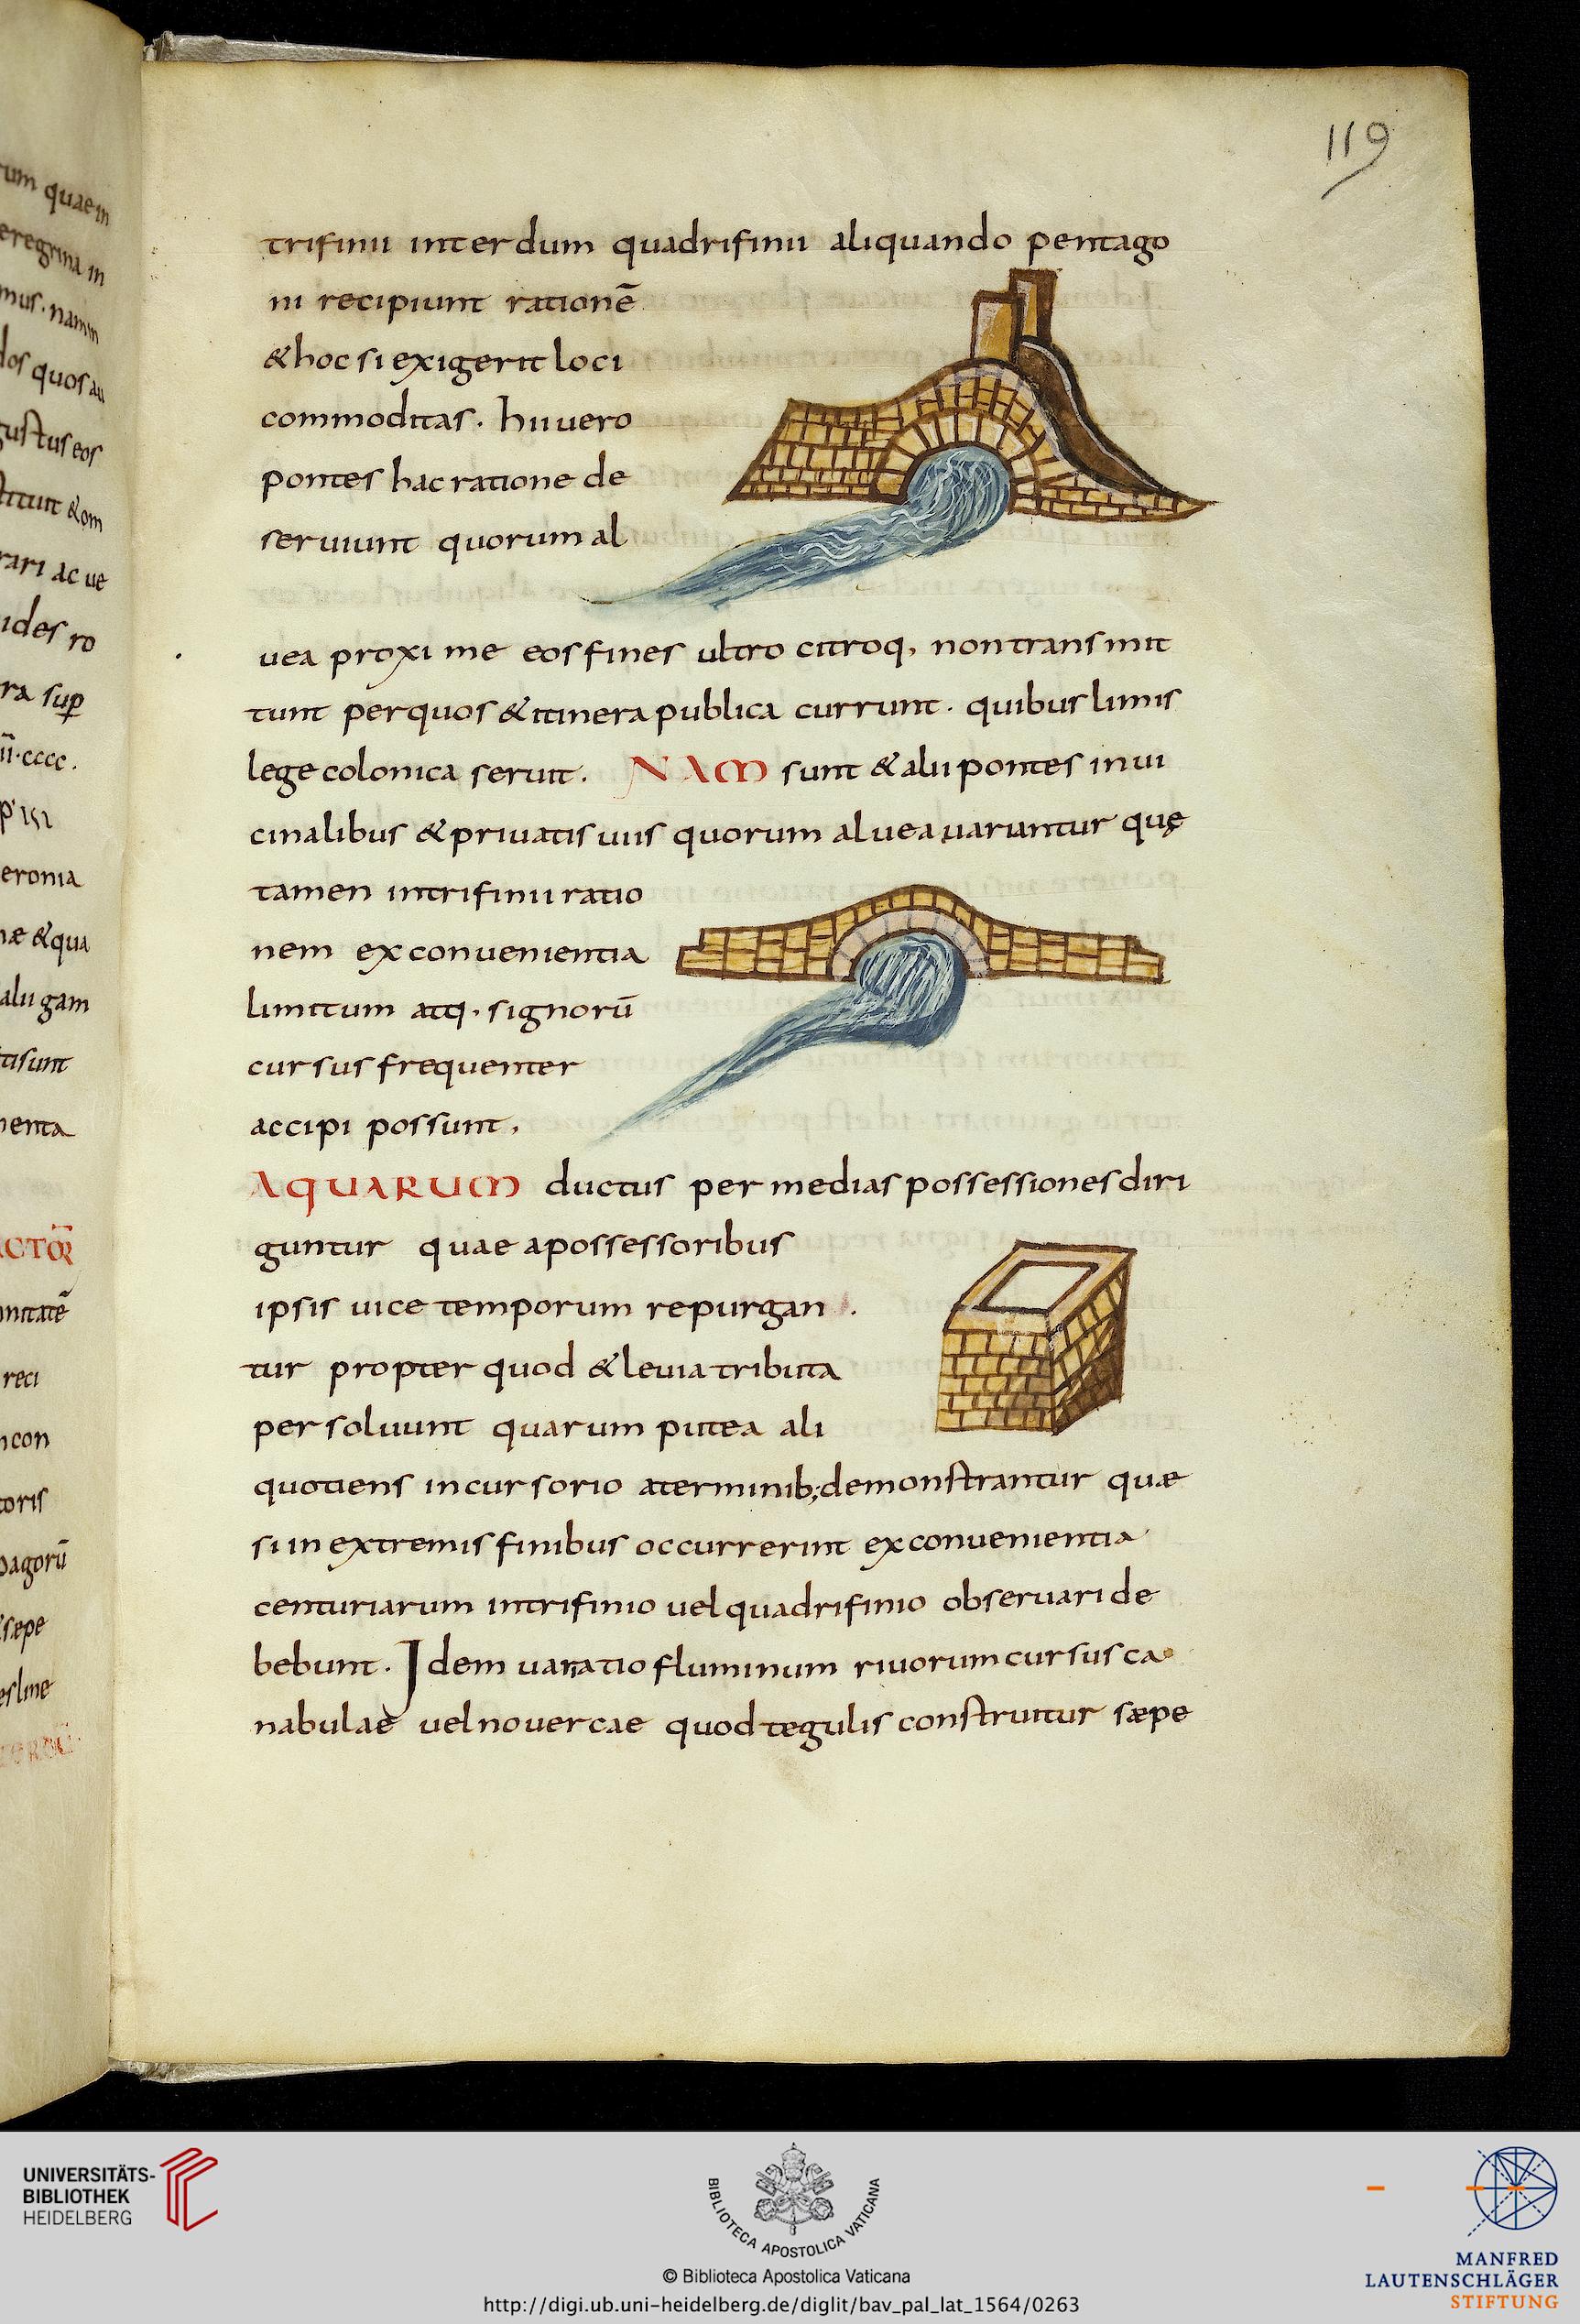 rum quae in
eregrina in
mus. namin
dos quos au
gustus eos
stituit & om
rari ac ue
ides ro
ra sup
II. cccc.
eronia
næ & qua
alii gam
tisunt
menta
ACTOR
nitatē
reci
ncon
toris
pagorū
sæpe
es lime
119
trifinii interdum quadrifinii aliquando pentago
ni recipiunt rationē
& hoc si exigerit loci
commoditas. hii uero
pontes hac ratione de
seruiunt quorum al
uea proxime eos fines ultro citroq, non transmit
tunt per quos & itinera publica currunt. quibus limis
lege colonica seruit. NAM sunt & alii pontes in ui
cinalibus & priuatis uiis quorum aluea uariuntur quę
tamen in trifinii ratio
nem ex conuenientia
limitum atq. signorū
cursus frequenter
accipi possunt,
AQUARUM ductus per medias possessiones diri
guntur quae a possessoribus
ipsis uice temporum repurgan .
tur propter quod & leuia tributa
persoluunt quarum putea ali
quotiens in cursorio a terminib; demonstrantur quæ
si in extremis finibus occurrerint ex conuenientia
centuriarum in trifinio uel quadrifinio obseruari de
bebunt. Idem uaratio fluminum riuorum cursus ca
nabulae uel nouercae quod tegulis construitur sæpe
UNIVERSITÄTS-
BIBLIOTHEK
HEIDELBERG
BIBLIOTECA APOSTOLICA VATICANA
© Biblioteca Apostolica Vaticana
http://digi.ub.uni-heidelberg.de/diglit/bav_pal_lat_1564/0263
MANFRED
LAUTENSCHLÄGER
STIFTUNG